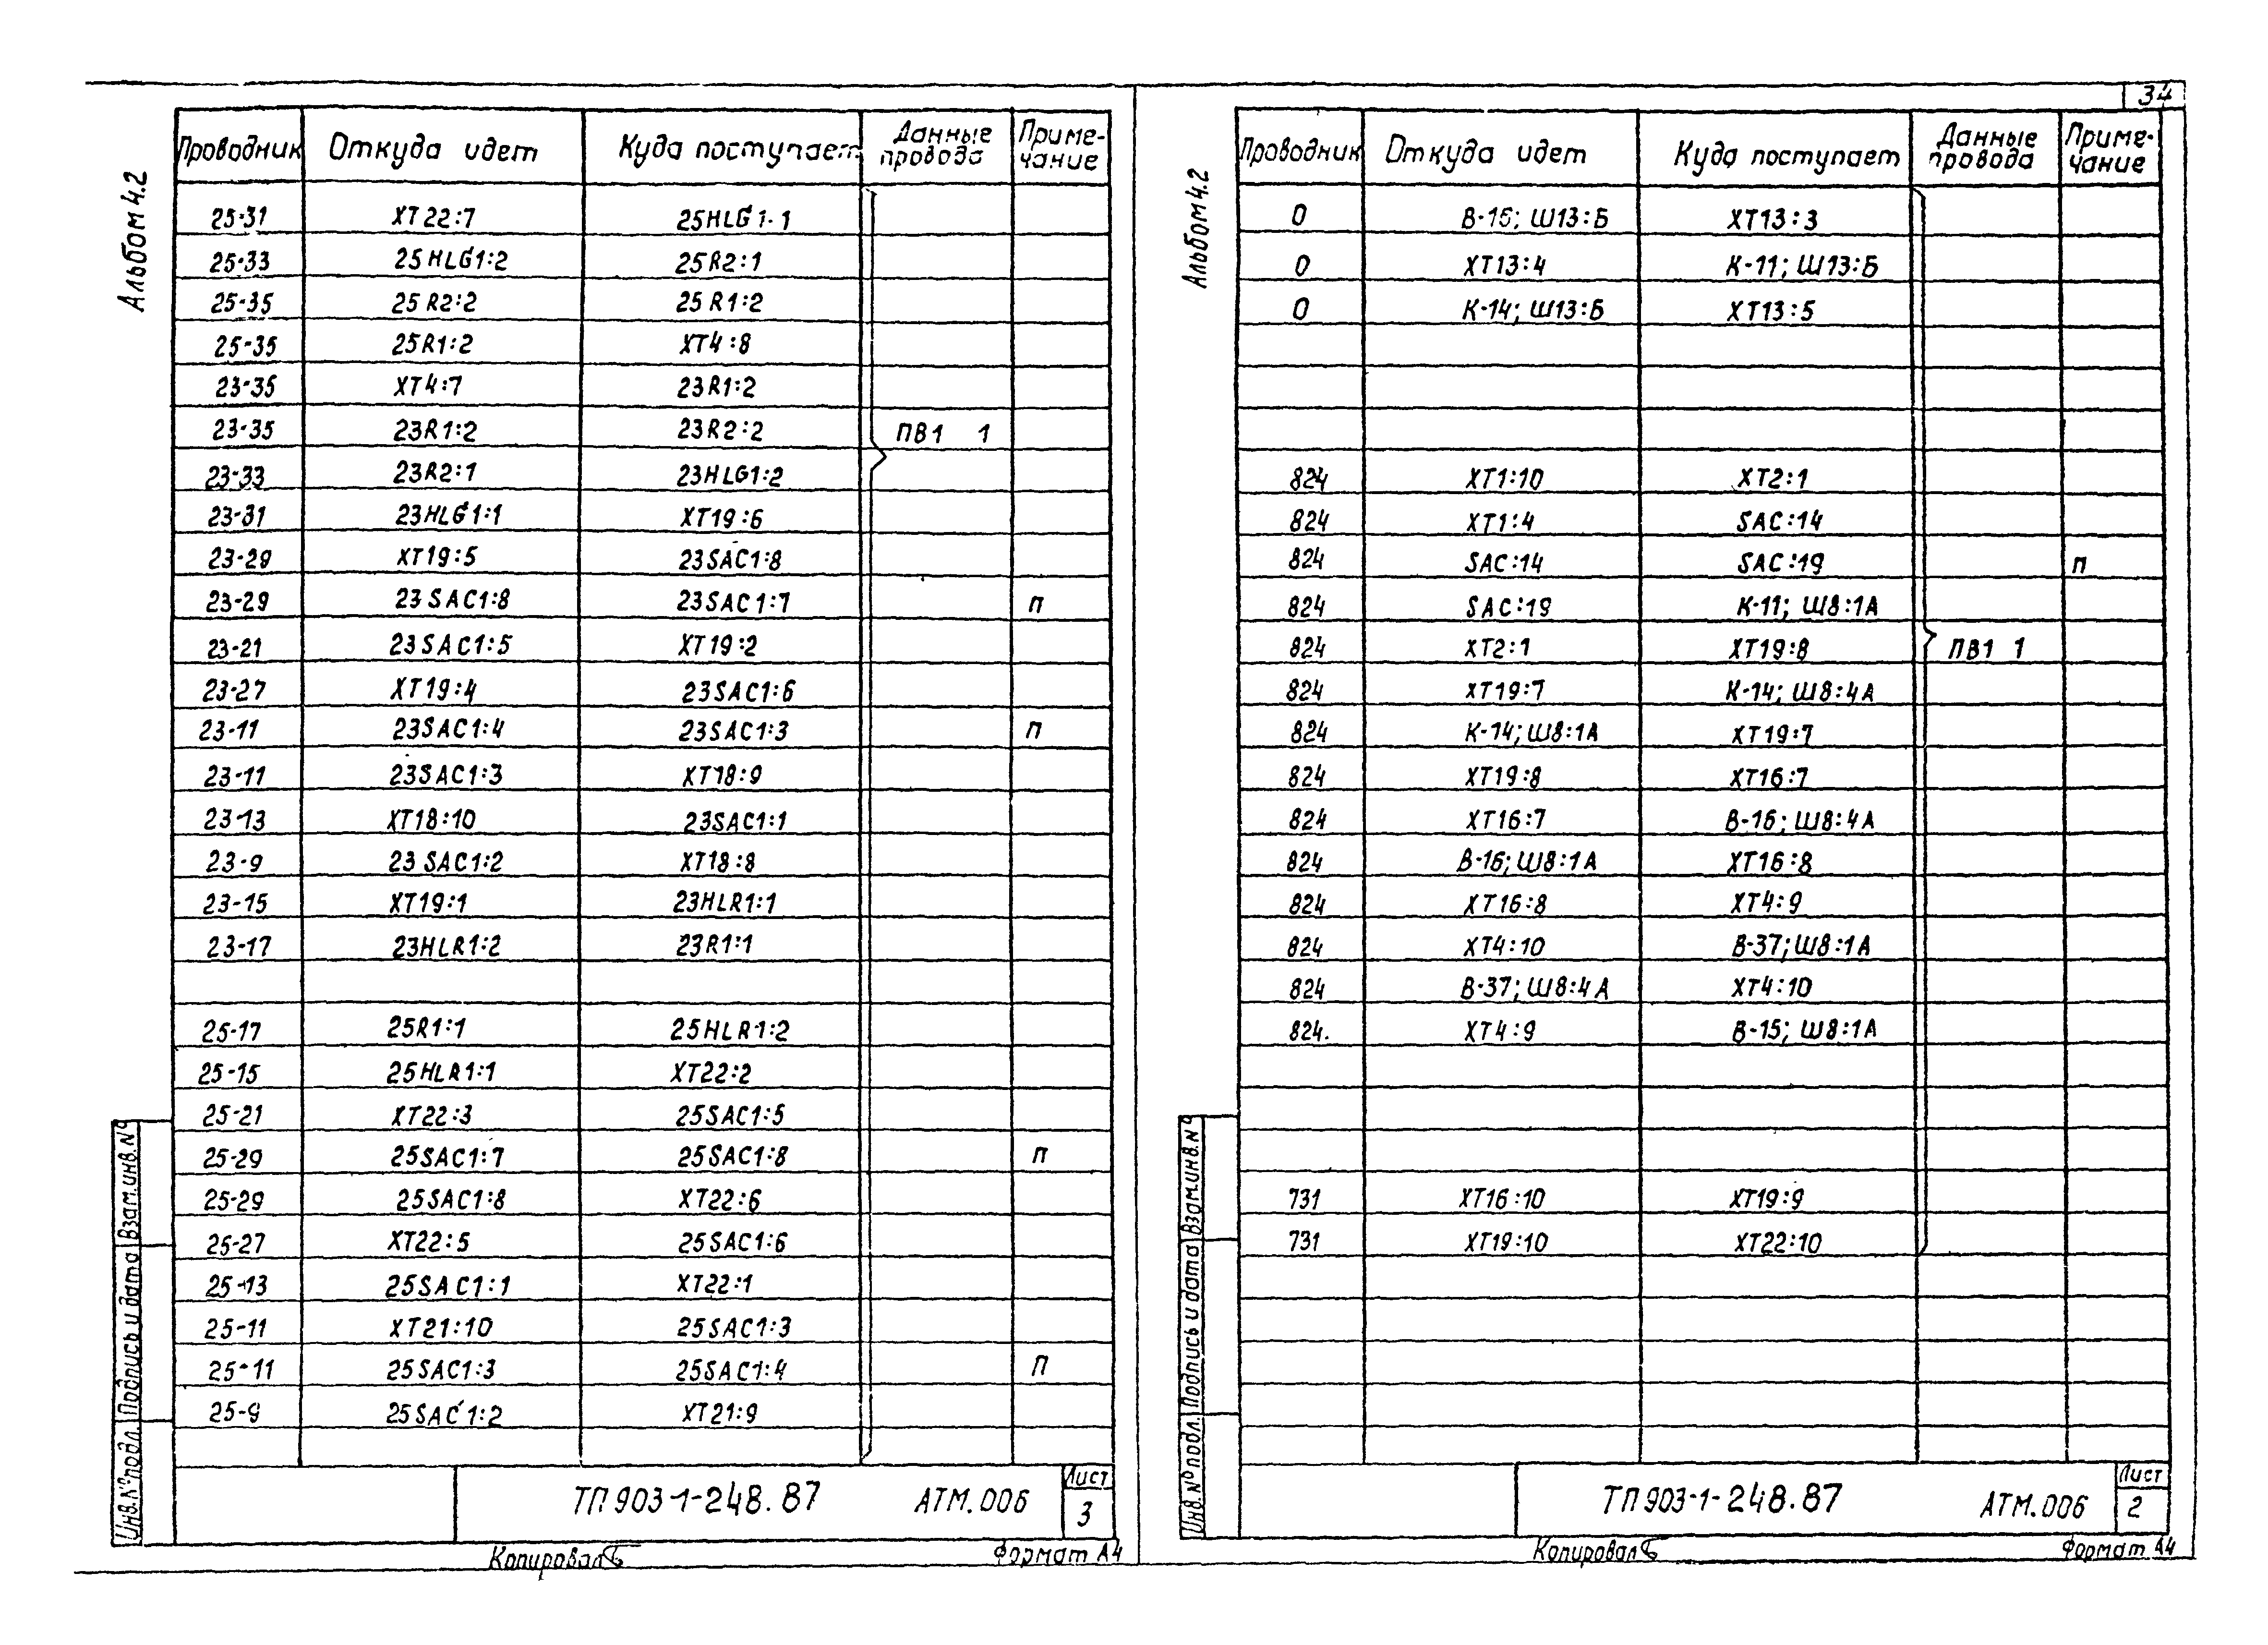 34
Альбом 4.2
Проводник Откуда идет Куда поступает Данные провода Приме-чание
25-31 XT22:7 25HLG1-1
25-33 25HLG1:2 25R2:1
25-35 25R2:2 25R1:2
25-35 25R1:2 XT4:8
23-35 XT4:7 23R1:2
23-35 23R1:2 23R2:2 ПВ1 1
23-33 23R2:1 23HLG1:2
23-31 23HLG1:1 XT19:6
23-29 XT19:5 23SAC1:8
23-29 23SAC1:8 23SAC1:7 П
23-21 23SAC1:5 XT19:2
23-27 XT19:4 23SAC1:6
23-11 23SAC1:4 23SAC1:3 П
23-11 23SAC1:3 XT18:9
23-13 XT18:10 23SAC1:1
23-9 23SAC1:2 XT18:8
23-15 XT19:1 23HLR1:1
23-17 23HLR1:2 23R1:1
25-17 25R1:1 25HLR1:2
25-15 25HLR1:1 XT22:2
25-21 XT22:3 25SAC1:5
25-29 25SAC1:7 25SAC1:8 П
25-29 25SAC1:8 XT22:6
25-27 XT22:5 25SAC1:6
25-13 25SAC1:1 XT22:1
25-11 XT21:10 25SAC1:3
25-11 25SAC1:3 25SAC1:4 П
25-9 25SAC1:2 XT21:9
Инв.№подл. Подпись и дата Взам.инв.№
ТП903-1-248.87 АТМ.006 Лист 3
Копировал Формат А4
Альбом 4.2
Проводник Откуда идет Куда поступает Данные провода Приме-чание
0 В-16; Ш13:Б XT13:3
0 XT13:4 К-11; Ш13:Б
0 К-14; Ш13:Б XT13:5
824 XT1:10 XT2:1
824 XT1:4 SAC:14
824 SAC:14 SAC:19 П
824 SAC:19 К-11; Ш8:1А
824 XT2:1 XT19:8 ПВ1 1
824 XT19:7 К-14; Ш8:4А
824 К-14; Ш8:1А XT19:7
824 XT19:8 XT16:7
824 XT16:7 В-16; Ш8:4А
824 В-16; Ш8:1А XT16:8
824 XT16:8 XT4:9
824 XT4:10 В-37; Ш8:1А
824 В-37; Ш8:4А XT4:10
824. XT4:9 В-15; Ш8:1А
731 XT16:10 XT19:9
731 XT19:10 XT22:10
Инв.№подл. Подпись и дата Взам.инв.№
ТП903-1-248.87 АТМ.006 Лист 2
Копировал Формат А4